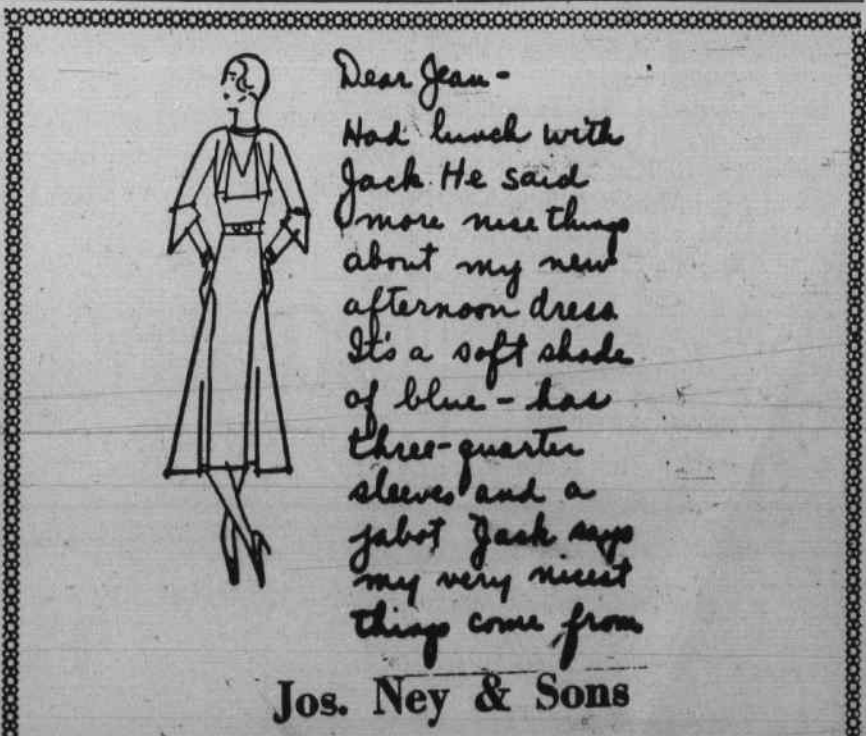 Dear Jean -
Had lunch with
Jack He said
more nice things
about my new
afternoon dress
It's a soft shade
of blue - has
three-quarter
sleeves and a
jabot Jack says
my very nicest
things come from
Jos. Ney & Sons